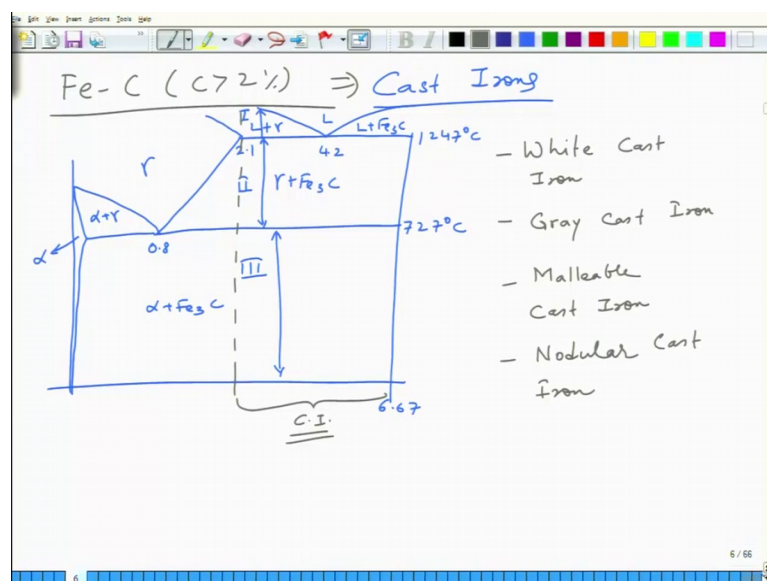 File Edit View Insert Actions Tools Help
B I
Fe-C (C>2%) ⇒ Cast Irons
I
L+γ
L
L+Fe3C
1247°C
2.1
4.2
γ
II
γ+Fe3C
α+γ
727°C
α
0.8
III
α+Fe3C
6.67
C.I.
- White Cast
Iron
- Gray Cast Iron
- Malleable
Cast Iron
- Nodular Cast
Iron
6 / 66
6